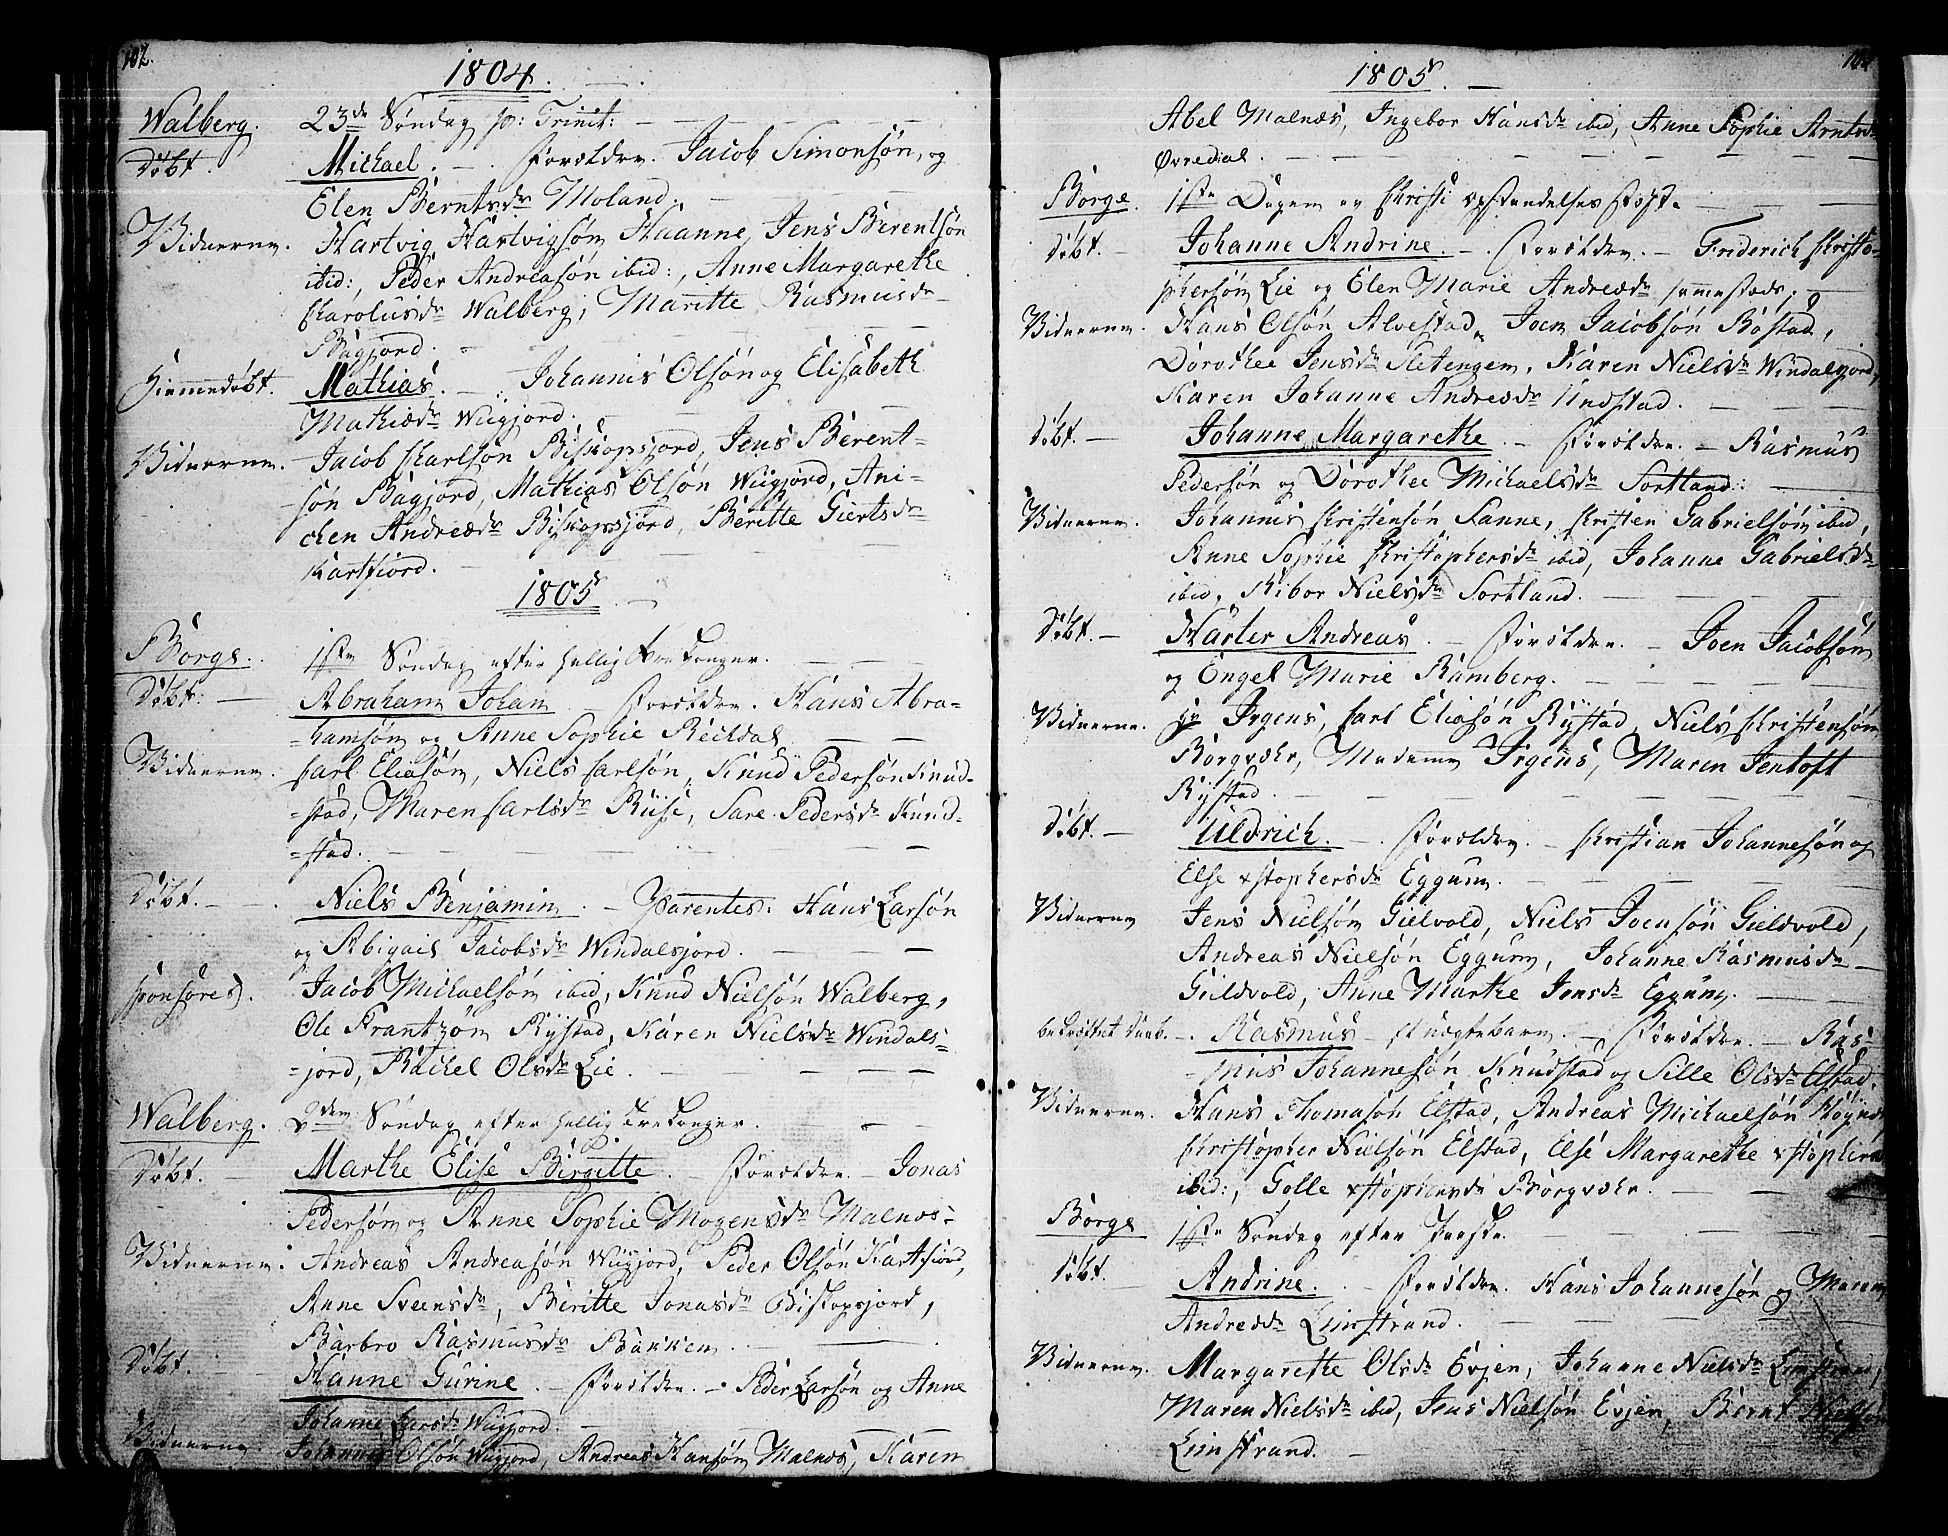 102.
1804.
Walberg. 23de Søndag p: Trinit:
Døbt. Michael. Forældre. Jacob Simonsøn, og
Elen Berntsdr Moland.
Vidnerne. Hartvig Hartvigsøn Haanne, Jens Berentsøn
ibid:, Peder Andreasøn ibid:, Anne Margarethe
Karolusdr Walberg, Maritte Rasmusdr
Bagjord.
Hiemmedøbt. Mathias. Johannis Olsøn og Elisabeth
Mathiædr Wigjord.
Vidnerne. Jacob Karlsøn Biskopsjord, Jens Berent-
søn Bagjord, Mathias Olsøn Wiigjord, Ani-
chen Andreædr Biskopsjord, Beritte Giertsdr
Kartfiord.
1805.
Borge. 1ste Søndag efter hellig tre konger.
Døbt. Abraham Johan. Forældre. Hans Abra-
hamsøn og Anne Sophie Reckdal.
Vidnerne. Carl Eliasøn, Niels Carlsøn, Knud Pedersøn Knud-
-stad, Maren Carlsdr Ruse, Sare Pedersdr Knud-
-stad.
Døbt. Niels Benjamin. Parentes: Hans Larsøn
og Abigail Jacobsdr Windalsjord.
Sponsores. Jacob Michaelsøn ibid, Knud Nielsøn Walberg,
Ole Frantzøn Rystad, Karen Nielsdr Windals-
-jord, Rachel Olsdr Lie.
Walberg. 2den Søndag efter hellig tre konger.
Døbt. Marthe Elise Birgitte. Forældre. Jonas
Pedersøn og Anne Sophie Mogensdr Malnæs.
Vidnerne. Andreas Andreasøn Wigjord, Peder Olsøn Kartfiord,
Anne Sveensdr, Beritte Jonasdr Biskopsjord,
Barbro Rasmusdr Bakken.
Døbt. Hanne Gurine. Forældre. Peder Larsøn og Anne
Johanne Larsdr Wigjord.
Vidnerne. Johannes Olsøn Wigjord, Andreas Hansøn Malnæs, Karen
1805.
Abel Malnæs, Ingebor Hansdr ibid, Anne Sophie Arntsdr
Øvredal.
Borge. 1ste Dagen og Christi opstandelses fest.
Døbt. Johanne Andrine. Forældre. Friderich Christo-
phersøn Lie og Elen Marie Andreædr sammesteds.
Vidnerne. Hans Olsøn Alvestad, Joen Jacobsøn Bøstad,
Dorothee Jensdr Sletengen, Karen Nielsdr Windalsjord,
Karen Johanne Andreædr Unstad.
Døbt. Johanne Margarethe. Forældre. Rasmus
Pedersøn og Dorothee Michaelsdr Sortland.
Vidnerne. Johannis Christensøn Sanne, Christen Gabrielsøn ibid,
Anne Sophie Christophersdr ibid, Johanne Gabrielsdr
ibid, Ribor Nielsdr Sortland.
Døbt. Harter Andreas. Forældre. Joen Jacobsøn
og Engel Marie Ramberg.
Vidnerne. Hr Irgens, Carl Eliasøn Rystad, Niels Christensøn
Borgvær, Madame Irgens, Maren Jentoft
Rystad.
Døbt. Uldrich. Forældre. Christian Johannesøn og
Else xstophersdr Eggum.
Vidnerne Jens Nielsøn Gieldvold, Niels Joensøn Gieldvold,
Andreas Nielsøn Eggum, Johanne Rasmusdr
Gieldvold, Anne Marthe Jensdr Eggum.
bekræftet Daab. Rasmus et uægte barn. Forældre. Ras-
mus Johannesøn Knudstad og Sille Olsdr Elstad.
Vidnerne. Hans Thomasøn Elstad, Andreas Michaelsøn
Christopher Nielsøn Elstad, Else Margarethe
ibid:, Golle xstophersdr Borgvær.
Borge 1ste Søndag efter Paaske.
Døbt. Andrine. Forældre. Hans Johannesøn og Maren
Andreædr Limstrand.
Vidnerne. Margarethe Olsdr Evjen, Johanne Nielsdr Limstrand,
Maren Nielsdr ibid, Jens Nielsøn Evjen, Bernt Nielsøn
Limstrand.